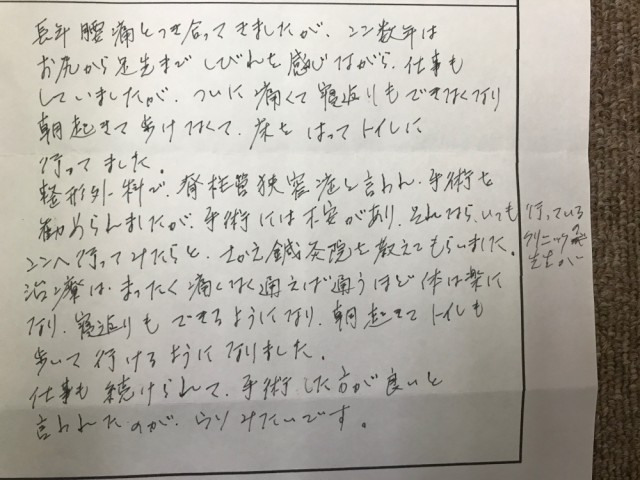 長年腰痛とつき合ってきましたが、ココ数年は
お尻から足先までしびれを感じながら、仕事も
していましたが、ついに痛くて寝返りもできなくなり
朝起きて歩けなくて、床をはってトイレに
行ってました。
整形外科で、脊柱管狭窄症と言われ、手術を
勧められましたが、手術には不安があり、それなら、いつも
ココへ行ってみたらと、さかえ鍼灸院を教えてもらいました。
治療は、まったく痛くなく通えば通うほど体は楽に
なり、寝返りもできるようになり、朝起きてトイレも
歩いて行けるようになりました。
仕事も続けられて、手術した方が良いと
言われたのが、ウソみたいです。
行っている
クリニックの
先生に